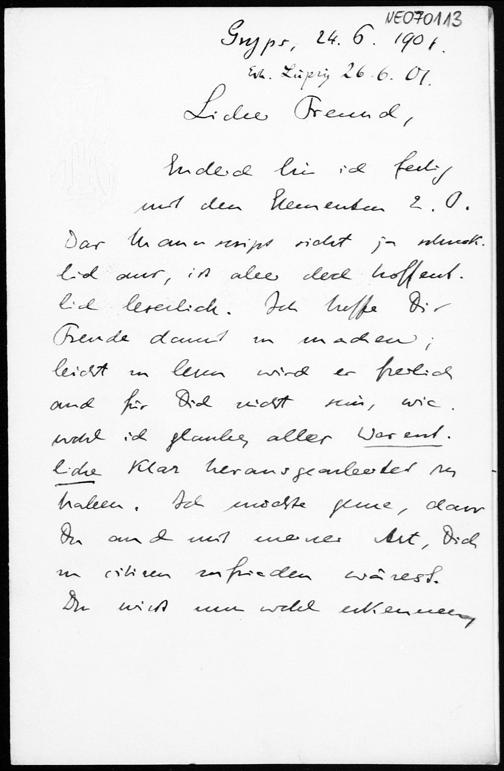 NE070113
Gryps, 24. 6. 1901.
Erh. Leipzig 26. 6. 01.
Lieber Freund,
Endlich bin ich fertig
mit den Elementen 2. O.
Das Manuscript sieht ja schreck-
lich aus, ist aber doch hoffent-
lich leserlich. Ich hoffe Dir
Freude damit zu machen;
leicht zu lesen wird er freilich
auch für Dich nicht sein, wie-
wohl ich glaube, alles Wesent-
liche klar herausgearbeitet zu
haben. Ich möchte gerne, dass
Du auch mit meiner Art, Dich
zu citiren zufrieden wärest.
Du wirst nun wohl erkennen,